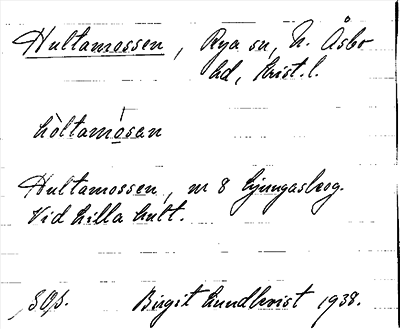 Hultamossen, Rya sn, N. Åsbo
hd, Krist. l.
hòltamósan
Hultamossen, nr 8 Ljungaskog.
Vid Lilla hult.
Birgit Lundkvist 1938.